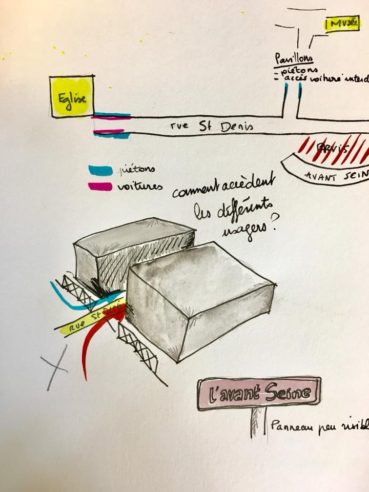 Musée
Pavillons
piétons
= accès voiture interd
Eglise
rue St Denis
PARVIS
AVANT SEIN
piétons
voitures
comment accèdent
les différents
usagers?
rue St Denis
L'avant Seine
Panneau peu visibl